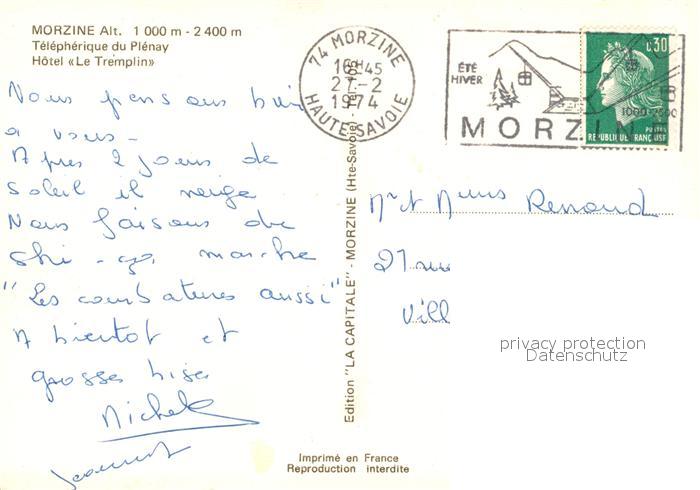 MORZINE Alt. 1 000 m - 2 400 m
Téléphérique du Plénay
Hôtel «Le Tremplin»
Nous pensons bien
à vous -
Après 2 jours de
soleil il neige
Nous faisons du
ski - ça marche
"Les courbatures aussi"
A bientôt et
grosses bises
Michel
74 MORZINE
16H45
27-2
1974
HAUTE-SAVOIE
ÉTÉ
HIVER
1000-2500
MORZINE
0,30
POSTES
REPUBLIQUE FRANÇAISE
Edition "LA CAPITALE" - MORZINE (Hte-Savoie)
Mr et Mme Renaud
21 rue
Vill
privacy protection
Datenschutz
Imprimé en France
Reproduction interdite